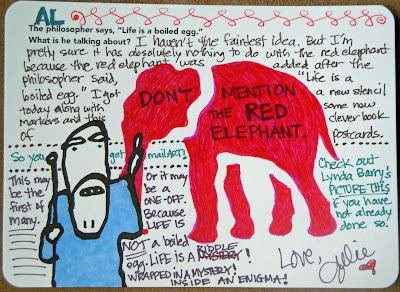 AL
The philosopher says, "Life is a boiled egg."
What is he talking about? I haven't the faintest idea. But I'm
pretty sure it has absolutely nothing to do with the red elephant
because the red elephant was added after the
philosopher said, "Life is a
boiled egg." I got a new stencil
today along with some new
markers and this clever book
of postcards.
DON'T MENTION
THE RED
ELEPHANT.
So you get mail ART!
This may
be the
first of
many.
Or it may
be a
one-off.
Because
LIFE IS
NOT a boiled
egg. LIFE IS A RIDDLE
MYSTERY!
WRAPPED IN A MYSTERY!
INSIDE AN ENIGMA!
Check out
Lynda Barry's
PICTURE THIS
if you have
not already
done so.
Love,
Julie